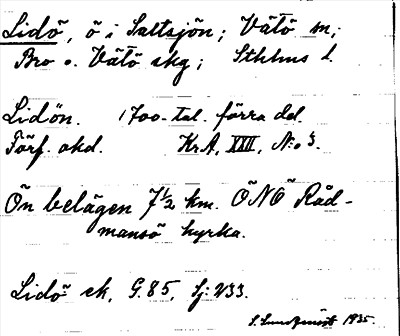 Lidö, ö i Saltsjön; Vätö sn;
Bro o. Vätö skg; Sthlms l.
Lidön. 1700-tal. förra del.
Förf. okd. Kr.A, XXII, N:o 3.
Ön belägen 7½ km. ÖNÖ Råd-
mansö kyrka.
Lidö: ek, G.85, Sj: V33.
S. Lundqvist 1935.